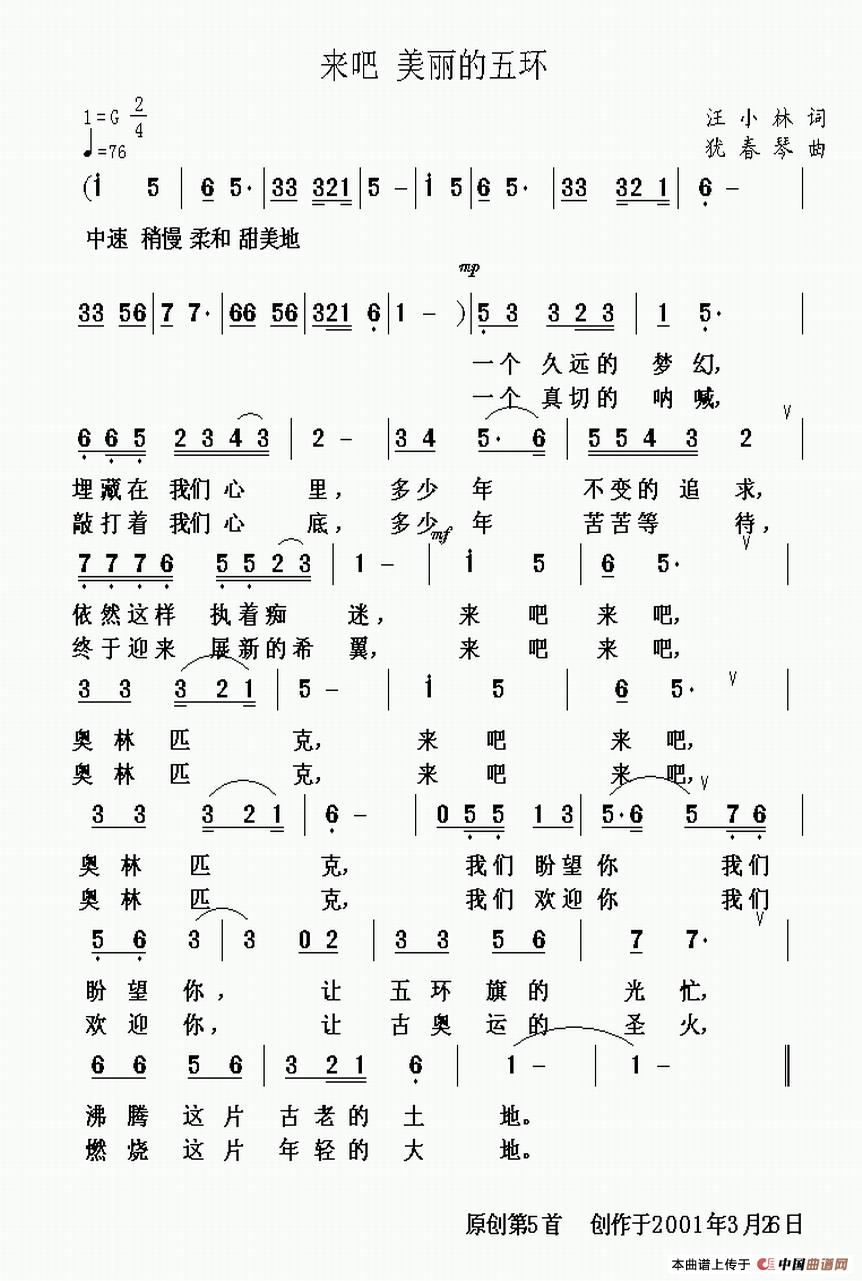 来吧 美丽的五环
1=G 2/4
汪小林词
♩=76
犹春琴曲
(i 5 | 6 5· | 33 321 | 5 - | i 5 | 6 5· | 33 32 1 | 6 - |
中速 稍慢 柔和 甜美地
mp
33 56 | 7 7· | 66 56 | 321 6 | 1 - ) | 5 3 3 2 3 | 1 5· |
一个 久远的 梦幻,
一个 真切的 呐喊,
∨
6 6 5 2 3 4 3 | 2 - | 3 4 5· 6 | 5 5 4 3 2 |
埋藏在 我们心 里, 多少年 不变的追 求,
敲打着 我们心 底, 多少年 苦苦等 待,
mf ∨
7 7 7 6 5 5 2 3 | 1 - | i 5 | 6 5· |
依然这样 执着痴 迷, 来 吧 来 吧,
终于迎来 展新的希 翼, 来 吧 来 吧,
3 3 3 2 1 | 5 - | i 5 | 6 5· ∨ |
奥林匹 克, 来 吧 来 吧,
奥林匹 克, 来 吧 来 吧,
∨
3 3 3 2 1 | 6 - | 0 5 5 1 3 | 5· 6 5 7 6 |
奥林匹 克, 我们 盼望你 我们
奥林匹 克, 我们 欢迎你 我们
∨
5 6 3 | 3 0 2 | 3 3 5 6 | 7 7· |
盼望你, 让 五环旗的 光忙,
欢迎你, 让 古奥运的 圣火,
6 6 5 6 | 3 2 1 6 | 1 - | 1 - ‖
沸腾这片 古老的土 地。
燃烧这片 年轻的大 地。
原创第5首 创作于2001年3月26日
本曲谱上传于 中国曲谱网